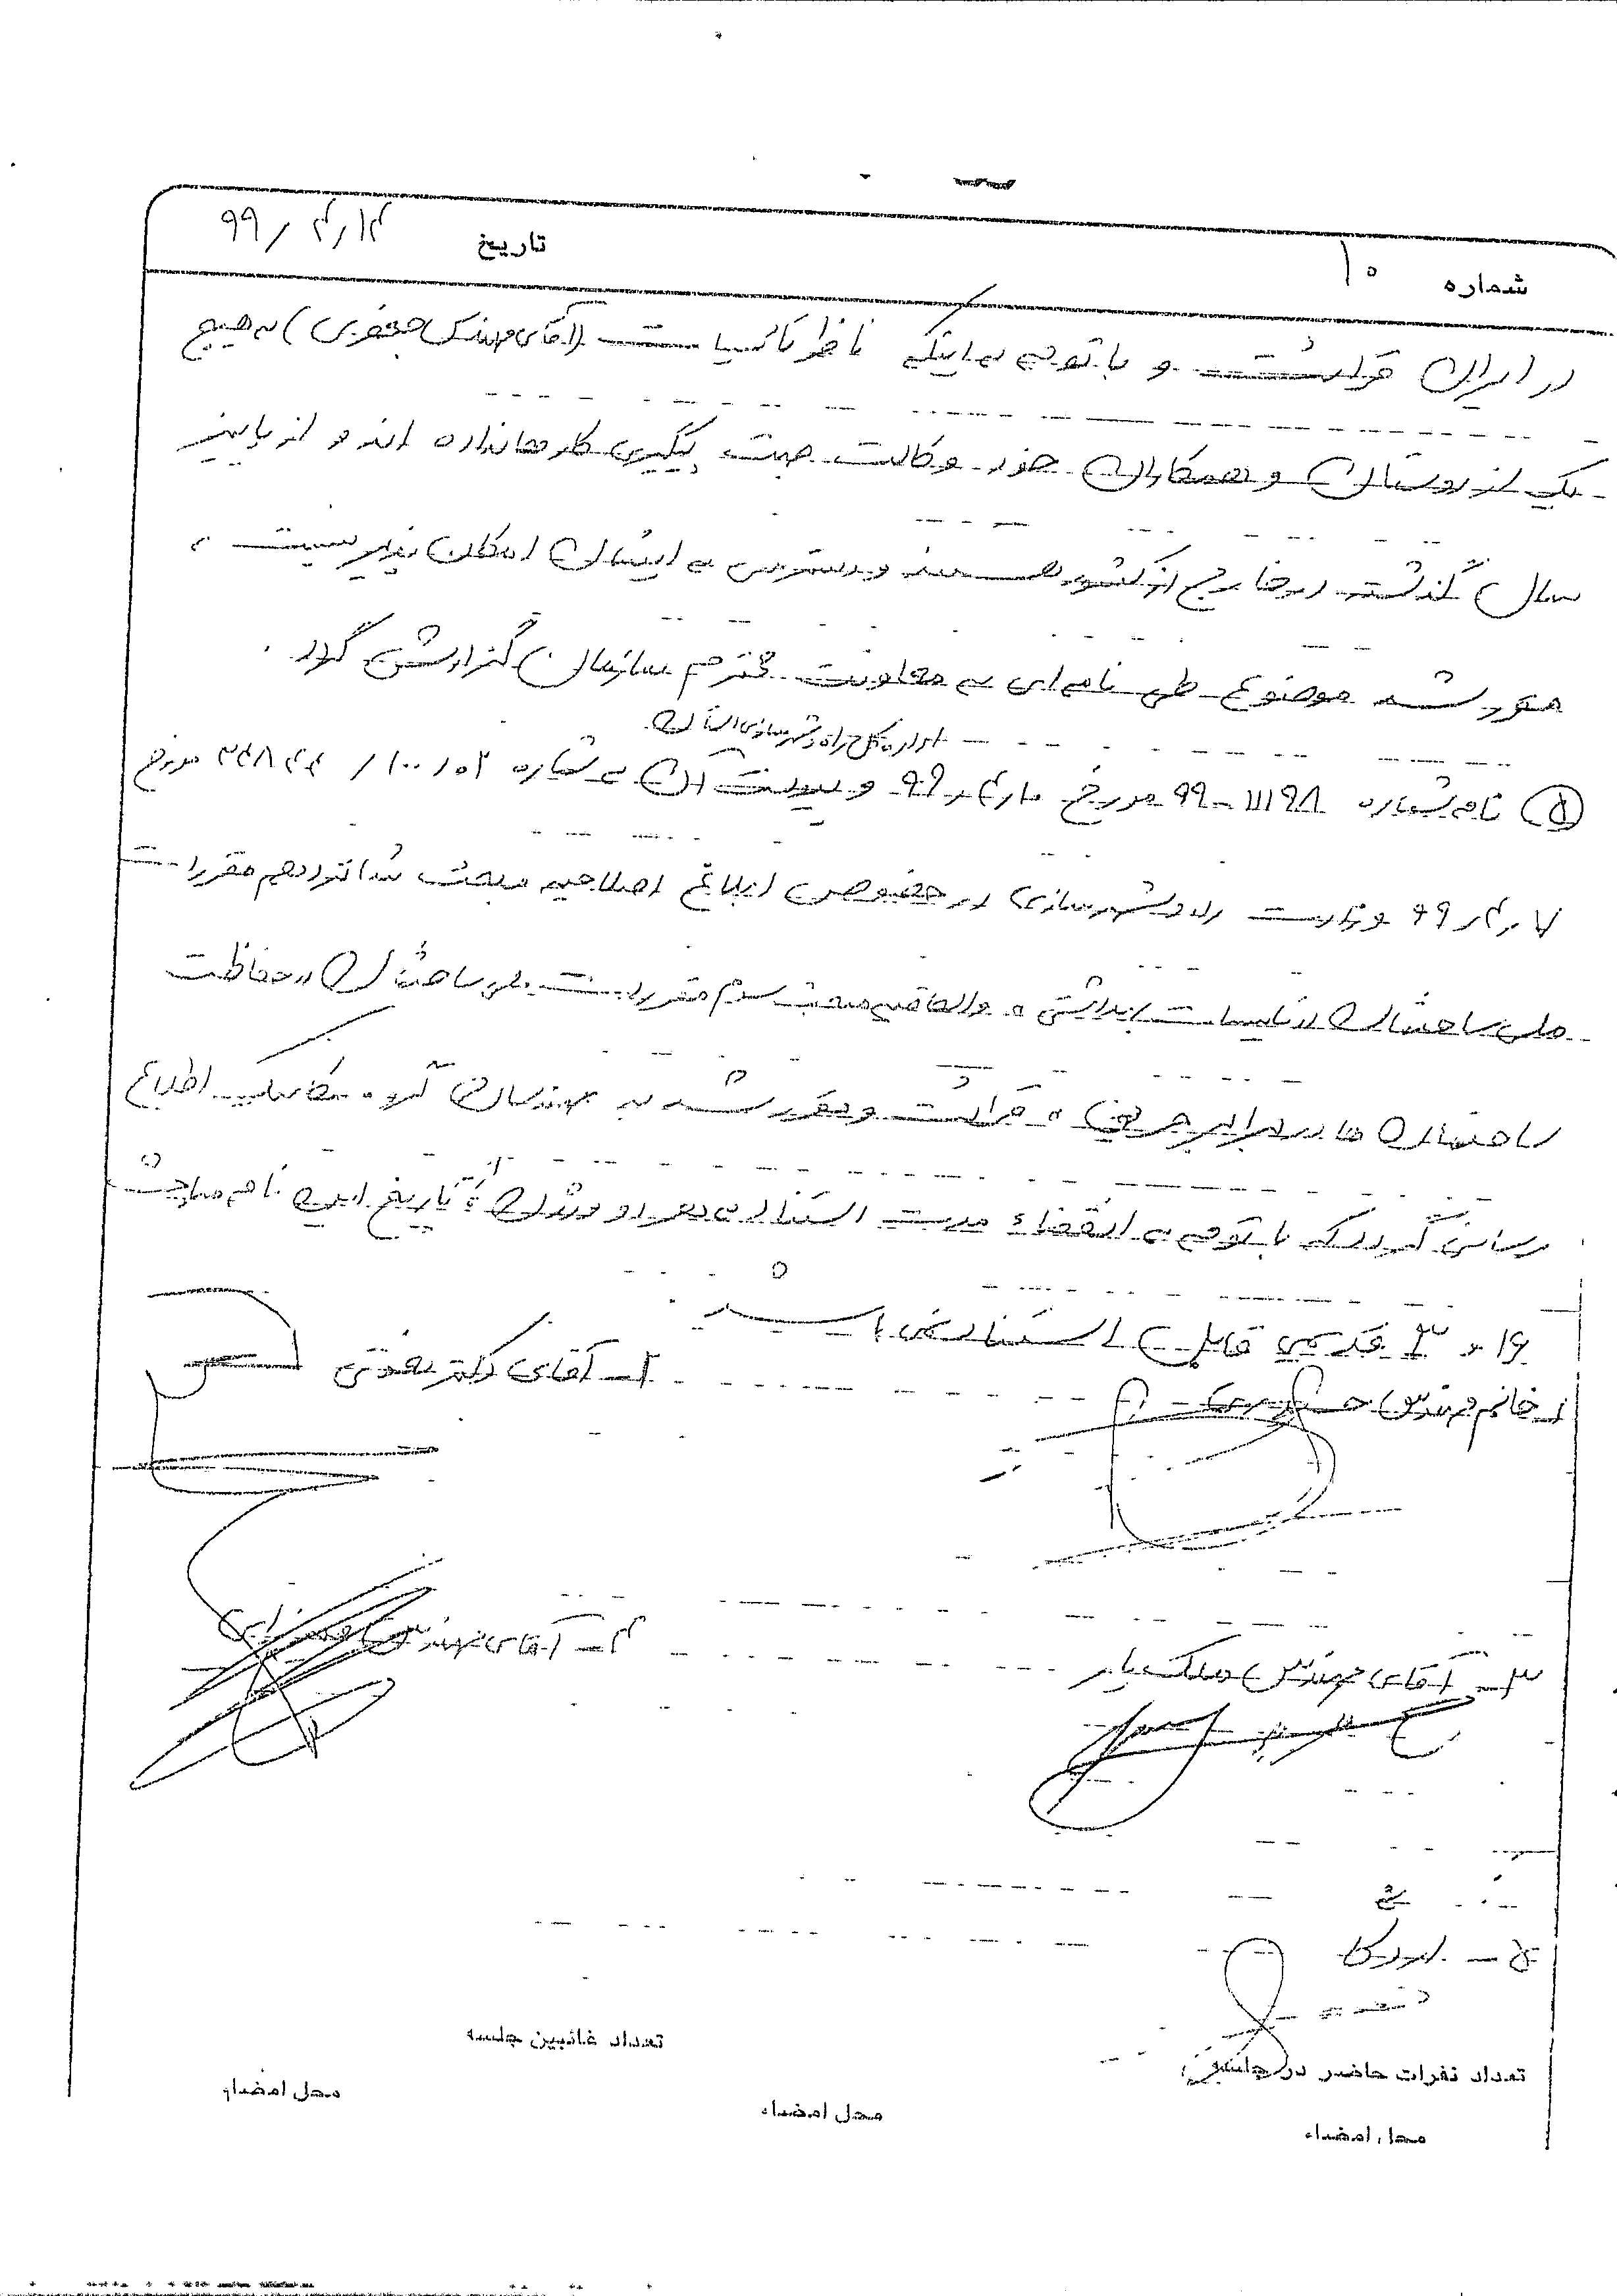 شماره ۱۰ تاریخ ۹۹/۴/۱۴
در ایران قرائت و با توجه به اینکه ناظر تاسیسات (آقای مهندس جعفری) به هیچ
یک از دوستان و همکاران خود وکالت جهت پیگیری کارها نداده اند و از پاییز
سال گذشته در خارج از کشور هستند و دسترسی به ایشان امکان پذیر نیست ،
مقرر شد موضوع طی نامه ای به معاونت محترم سازمان گزارش گردد .
اداره کل راه و شهرسازی استان
۵) نامه شماره ۹۹-۱۱۱۹۸ مورخ ۹۹ و پیوست آن به شماره ۱۰۰/۰۲ مورخ
۹۹ وزارت راه و شهرسازی در خصوص ابلاغ اصلاحیه مبحث شانزدهم مقررات
ملی ساختمان "تاسیسات بهداشتی" و الحاقیه مبحث سوم مقررات ملی ساختمان "حفاظت
ساختمان ها در برابر حریق" قرائت و مقرر شد به مهندسان گروه مکانیک اطلاع
رسانی گردد که با توجه به انقضاء مدت استفاده تاریخ این نامه مباحث
۱۶ و ۳ قدیمی قابل استناد نمی باشد .
۱- خانم مهندس ۲- آقای دکتر
۳- آقای مهندس ملک یار ۴- آقای مهندس
تعداد نفرات حاضر در جلسه تعداد غائبین جلسه
محل امضاء محل امضاء محل امضاء